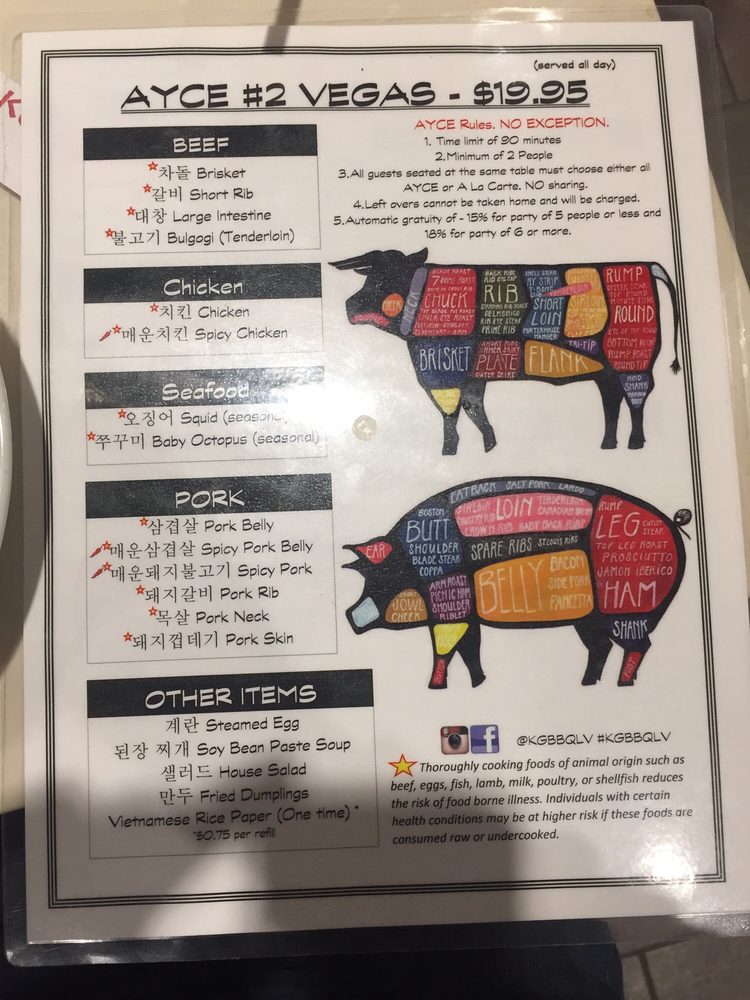 (served all day)
AYCE #2 VEGAS - $19.95
BEEF
차돌 Brisket
갈비 Short Rib
대창 Large Intestine
불고기 Bulgogi (Tenderloin)
Chicken
치킨 Chicken
매운치킨 Spicy Chicken
Seafood
오징어 Squid (seasonal)
쭈꾸미 Baby Octopus (seasonal)
PORK
삼겹살 Pork Belly
매운삼겹살 Spicy Pork Belly
매운돼지불고기 Spicy Pork
돼지갈비 Pork Rib
목살 Pork Neck
돼지껍데기 Pork Skin
OTHER ITEMS
계란 Steamed Egg
된장 찌개 Soy Bean Paste Soup
샐러드 House Salad
만두 Fried Dumplings
Vietnamese Rice Paper (One time) *
*$0.75 per refill
AYCE Rules. NO EXCEPTION.
1. Time limit of 90 minutes
2.Minimum of 2 People
3.All guests seated at the same table must choose either all
AYCE or A La Carte. NO sharing.
4.Left overs cannot be taken home and will be charged.
5.Automatic gratuity of - 15% for party of 5 people or less and
18% for party of 6 or more.
BLADE ROAST
7 BONE ROAST
CHUCK
RIB
DELMONICO
RIB EYE STEAK
PRIME RIB
NY STRIP
T-BONE
SHORT
LOIN
PORTERHOUSE
HANGER
SIRLOIN
TRI-TIP
RUMP
MINUTE STEAK
ROUND
EYE OF THE ROUND
RUMP ROAST
BRISKET
PLATE
OUTER SKIRT
FLANK
HIND
SHANK
FATBACK SALT PORK LARDO
BOSTON
BUTT
SHOULDER
BLADE STEAK
COPPA
LOIN
TENDERLOIN
CANADIAN BACON
CROWN RIB BABY BACK RIBS
SPARE RIBS ST LOUIS RIBS
BELLY
BACON
SIDE PORK
PANCETTA
RUMP
LEG
CUTLET
STEAK
TOP LEG ROAST
PROSCIUTTO
JAMON IBERICO
HAM
SHANK
FOOT
EAR
JOWL
CHEEK
ARM ROAST
PICNIC HAM
SHOULDER
RIBLET
@KGBBQLV #KGBBQLV
Thoroughly cooking foods of animal origin such as
beef, eggs, fish, lamb, milk, poultry, or shellfish reduces
the risk of food borne illness. Individuals with certain
health conditions may be at higher risk if these foods are
consumed raw or undercooked.